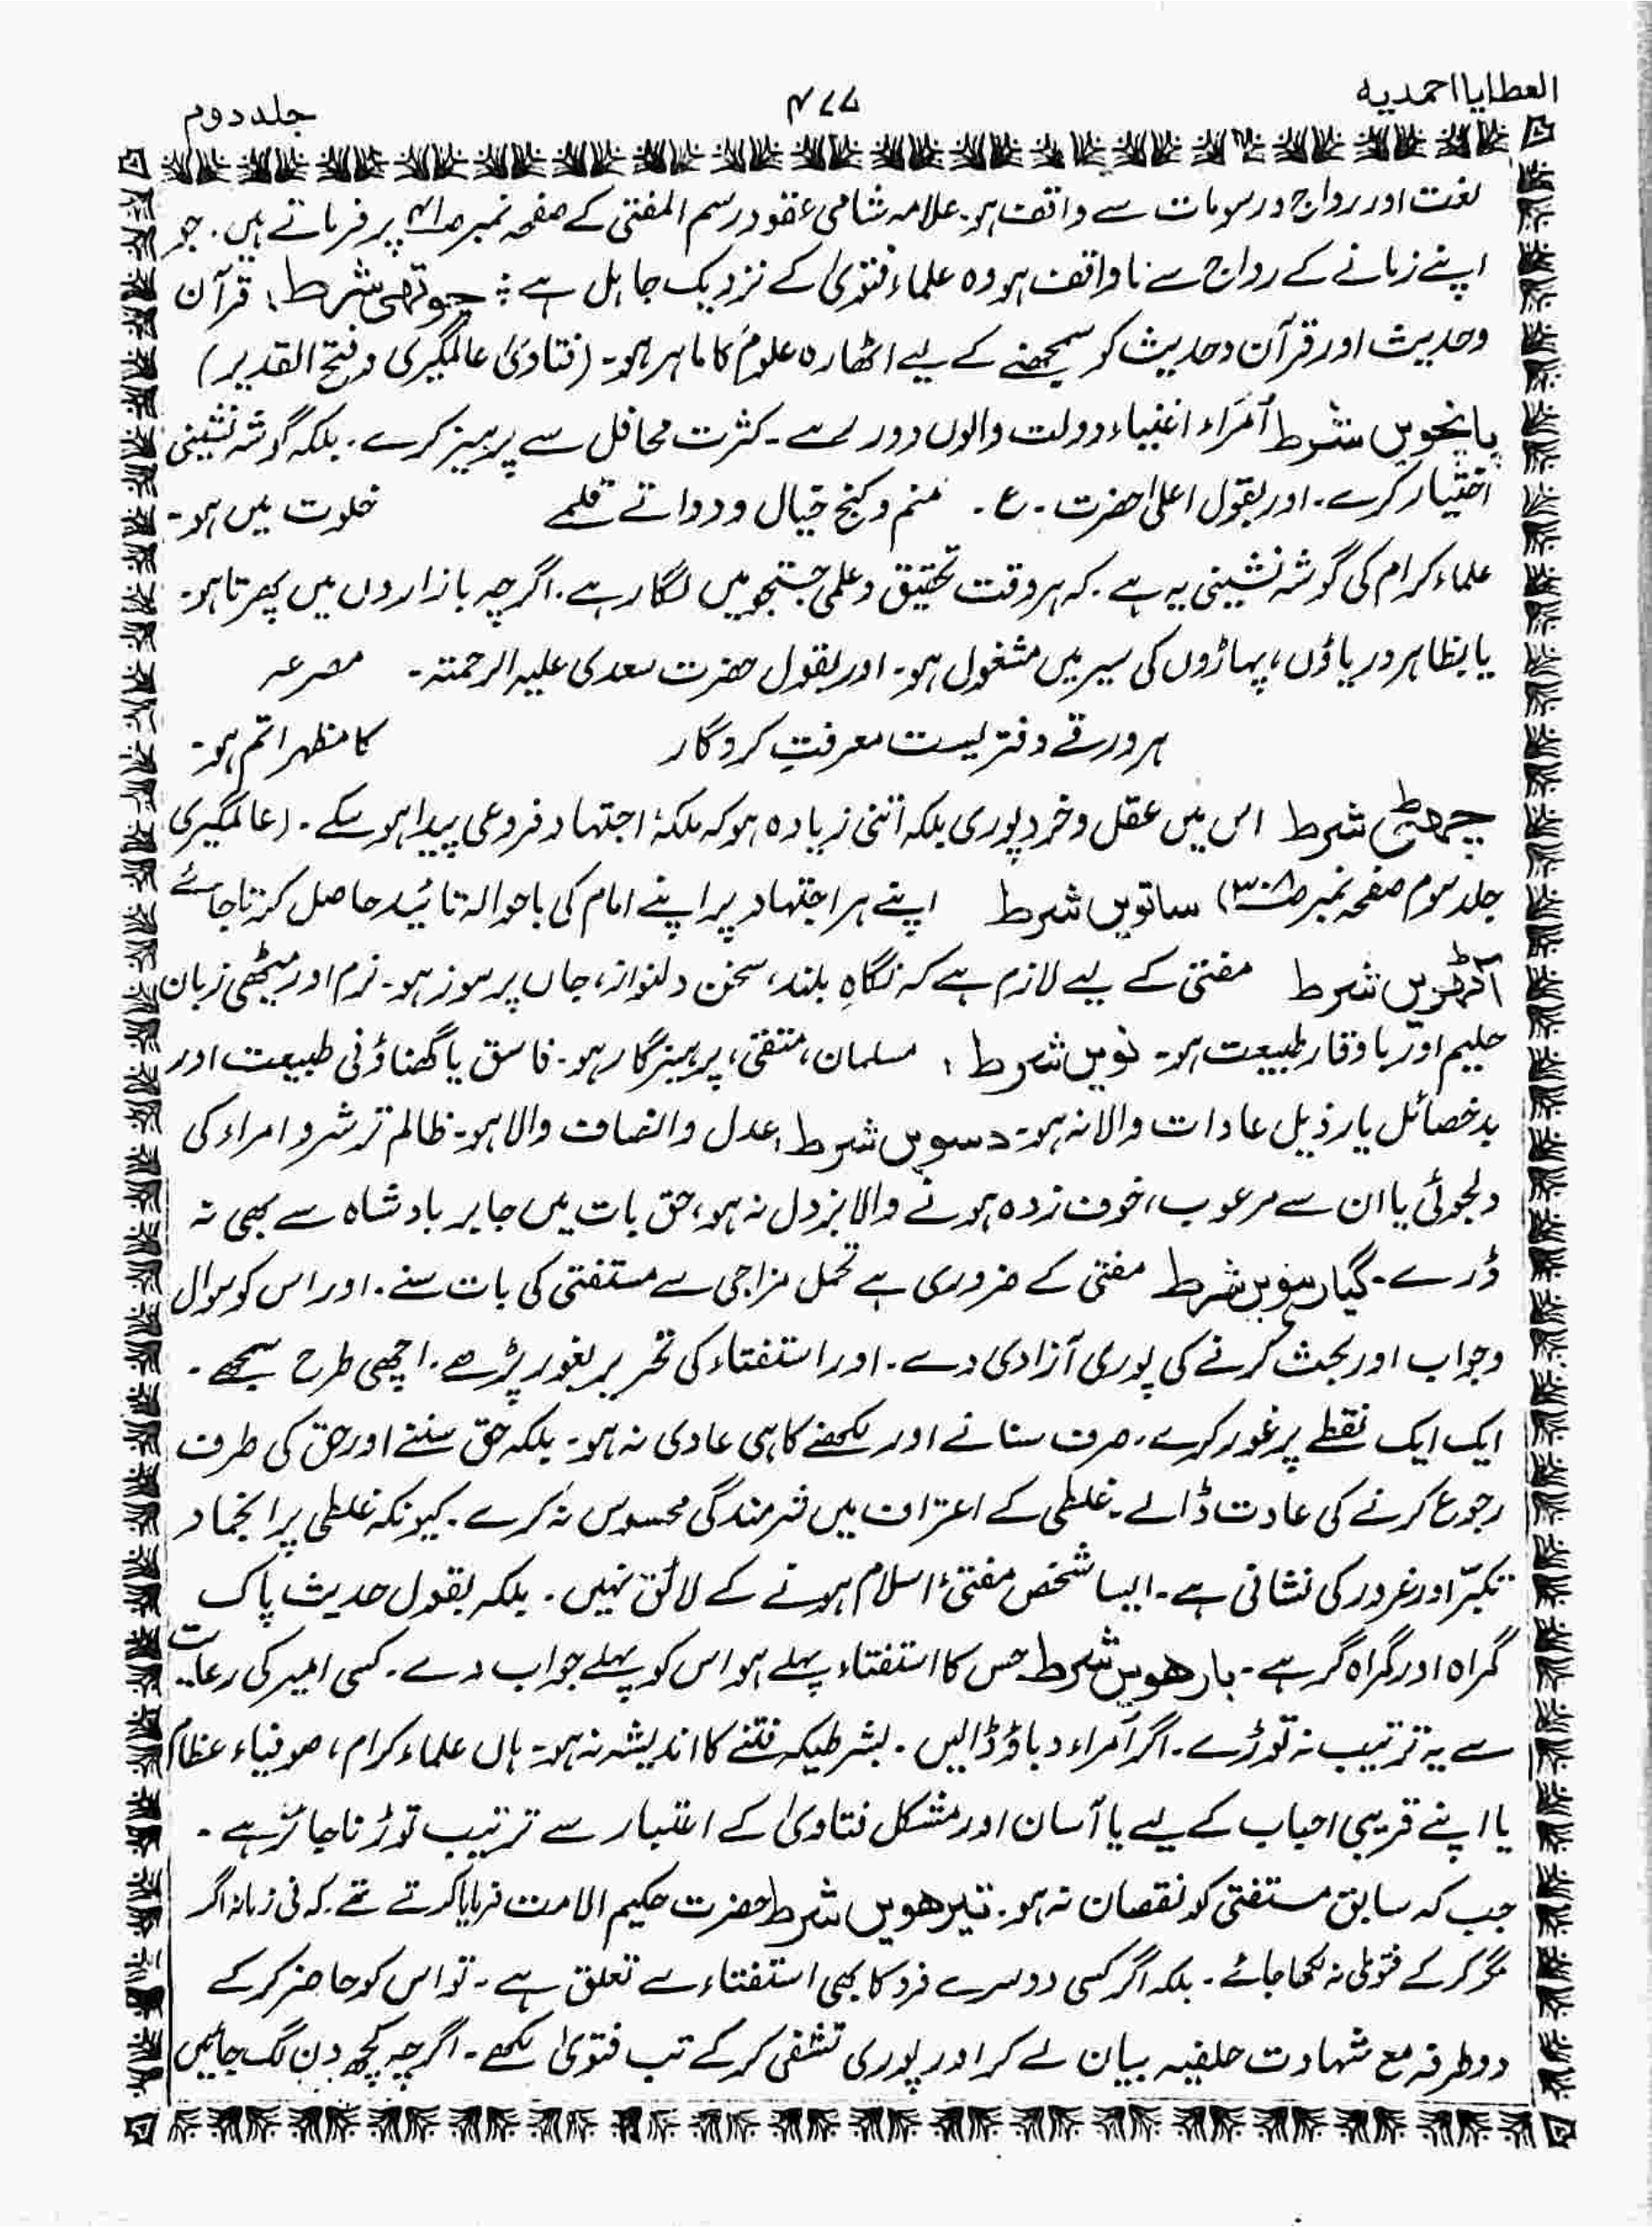 العطایا احمدیہ ۴۷۷ جلد دوم
لغت اور رواج و رسومات سے واقف ہو۔ علامہ شامی عقود رسم المفتی کے صفحہ نمبر صہ۴۱ پر فرماتے ہیں۔ جو
اپنے زمانے کے رواج سے ناواقف ہو وہ علماءِ فتویٰ کے نزدیک جاہل ہے؛ چوتھی شرط: قرآن
و حدیث اور قرآن و حدیث کو سمجھنے کے لیے اٹھارہ علوم کا ماہر ہو۔ (فتاویٰ عالمگیری و فتح القدیر)
پانچویں شرط اُمَراء اغنیاء دولت والوں دور رہے۔ کثرت محافل سے پرہیز کرے۔ بلکہ گوشہ نشینی
اختیار کرے۔ اور بقول اعلیٰ حضرت۔ ع۔ منم و کنج خیال و دواتے قلمے خلوت میں ہو۔
علماء کرام کی گوشہ نشینی یہ ہے۔ کہ ہر وقت تحقیق و علمی جستجو میں لگا رہے۔ اگرچہ بازاروں میں پھرتا ہو۔
یا بظاہر دریاؤں، پہاڑوں کی سیر میں مشغول ہو۔ اور بقول حضرت سعدی علیہ الرحمتہ۔ مصرعہ
ہر ورقے دفتر یست معرفتِ کردگار کا مظہر اتم ہو۔
چھٹی شرط اس میں عقل و خرد پوری بلکہ اتنی زیادہ ہو کہ ملکۂ اجتہاد فروعی پیدا ہو سکے۔ (عالمگیری
جلد سوم صفحہ نمبر صہ۳۰۸) ساتویں شرط اپنے ہر اجتہاد پر اپنے امام کی باحوالہ تائید حاصل کرتا جائے
آٹھویں شرط مفتی کے لیے لازم ہے کہ نگاہِ بلند، سخن دلنواز، جاں پرسوز ہو۔ نرم اور میٹھی زبان
حلیم اور باوقار طبیعت ہو۔ نویں شرط: مسلمان، متقی، پرہیزگار ہو۔ فاسق یا گھناؤنی طبیعت اور
بدخصائل یا رذیل عادات والا نہ ہو۔ دسویں شرط: عدل و انصاف والا ہو۔ ظالم ترشرو امراء کی
دلجوئی یا ان سے مرعوب، خوف زدہ ہونے والا بزدل نہ ہو، حق بات میں جابر بادشاہ سے بھی نہ
ڈرے۔ گیارہویں شرط مفتی کے ضروری ہے تحمل مزاجی سے مستفتی کی بات سنے۔ اور اس کو سوال
و جواب اور بحث کرنے کی پوری آزادی دے۔ اور استفتاء کی تحریر بغور پڑھے۔ اچھی طرح سمجھے۔
ایک ایک نقطے پر غور کرے۔ صرف سنانے اور لکھنے کا ہی عادی نہ ہو۔ بلکہ حق سننے اور حق کی طرف
رجوع کرنے کی عادت ڈالے۔ غلطی کے اعتراف میں شرمندگی محسوس نہ کرے۔ کیونکہ غلطی پر انجماد
تکبّر اور غرور کی نشانی ہے۔ ایسا شخص مفتیٔ اسلام ہونے کے لائق نہیں۔ بلکہ بقول حدیث پاک
گمراہ اور گمراہ گر ہے۔ بارھویں شرط جس کا استفتاء پہلے ہو اس کو پہلے جواب دے۔ کسی امیر کی رعایت
سے یہ ترتیب نہ توڑے۔ اگر اُمراء دباؤ ڈالیں۔ بشرطیکہ فتنے کا اندیشہ نہ ہو۔ ہاں علماء کرام، صوفیاء عظام
یا اپنے قریبی احباب کے لیے یا آسان اور مشکل فتاویٰ کے اعتبار سے ترتیب توڑنا جائز ہے۔
جب کہ سابق مستفتی کو نقصان نہ ہو۔ تیرھویں شرط حضرت حکیم الامت فرمایا کرتے تھے۔ کہ فی زمانہ اگر
مگر کر کے فتویٰ نہ لکھا جائے۔ بلکہ اگر کسی دوسرے فرد کا بھی استفتاء سے تعلق ہے۔ تو اس کو حاضر کر کے
دو طرفہ مع شہادت حلفیہ بیان لے کر اور پوری تشفی کر کے تب فتویٰ لکھے۔ اگرچہ کچھ دن لگ جائیں